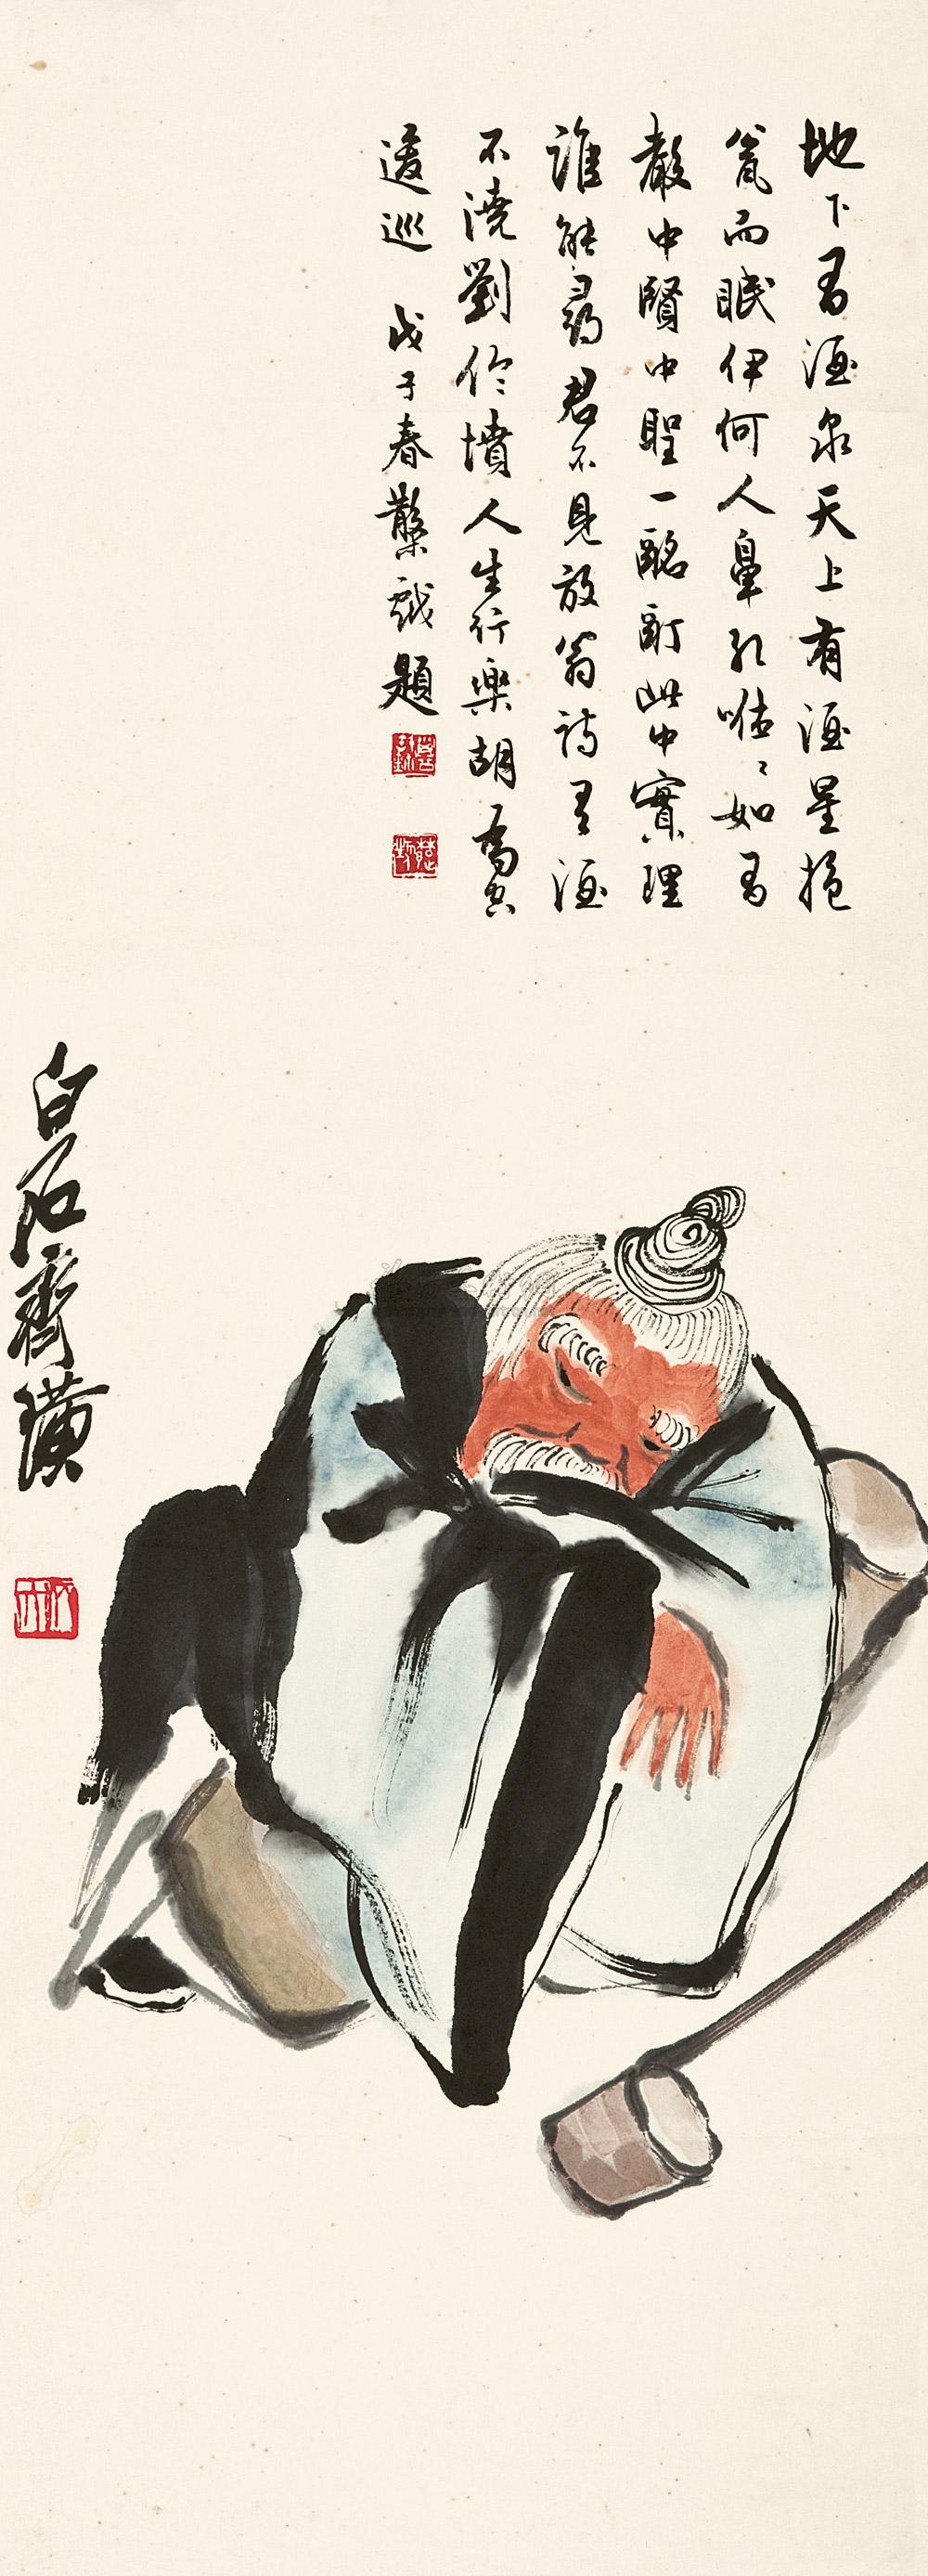 地下有酒泉天上有酒星抱
瓮而眠伊何人鼻孔咻〻如有
聲中賢中聖一酩酊此中實理
誰能尋君不見放翁詩有酒
不澆劉伶墳人生行樂胡為
逡巡 戊子春題
白石齊璜
木人